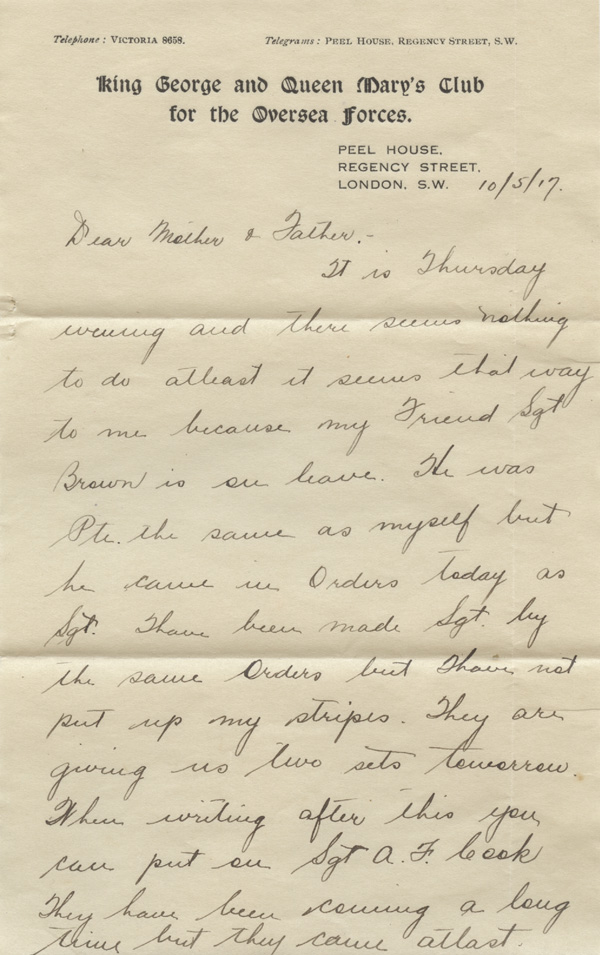 Telephone: VICTORIA 8658. Telegrams: PEEL HOUSE, REGENCY STREET, S.W.
King George and Queen Mary's Club
for the Oversea Forces.
PEEL HOUSE,
REGENCY STREET,
LONDON, S.W. 10/5/17.
Dear Mother & Father.-
It is Thursday
evening and there seems nothing
to do atleast it seems that way
to me because my Friend Sgt
Brown is on leave. He was
Pte. the same as myself but
he came in Orders today as
Sgt. I have been made Sgt. by
the same Orders but I have not
put up my stripes. They are
giving us two sets tomorrow.
When writing after this you
can put on Sgt A. F. Cook
They have been coming a long
time but they came atlast.